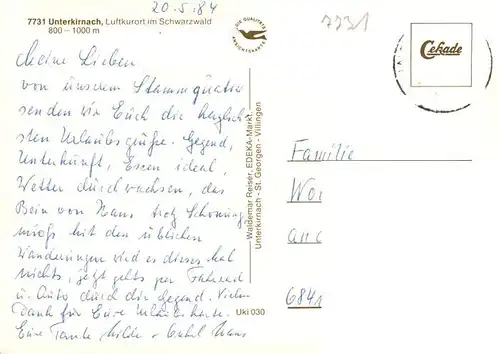 20.5.84
7731 Unterkirnach, Luftkurort im Schwarzwald
800 – 1000 m
DIE QUALITÄTS
ANSICHTSKARTE
7731
Cekade
Meine Lieben
von unserem Stammquartier
senden wir Euch die herzlich-
sten Urlaubsgrüße. Gegend,
Unterkunft, Essen ideal,
Wetter durchwachsen, das
Bein von Hans trotz Schonung
mit den üblichen
Wanderungen wird es dieses Mal
nichts, jetzt gehts per Fahrrad
u. Auto durch die Gegend. Vielen
Dank für Eure Urlaubskarte.
Eure Tante Hilde + Onkel Hans
Waldemar Reiser, EDEKA-Markt
Unterkirnach - St. Georgen - Villingen
Uki 030
Familie
Wor
an d
684